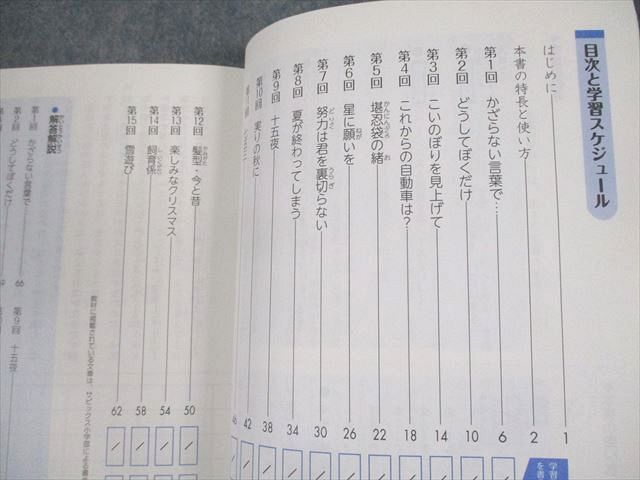 目次と学習スケジュール
はじめに 1
本書の特長と使い方 2
第1回 かざらない言葉で… 6
第2回 どうしてぼくだけ 10
第3回 こいのぼりを見上げて 14
第4回 これからの自動車は? 18
第5回 堪忍袋の緒 22
かんにんぶくろ お
第6回 星に願いを 26
ねが
第7回 努力は君を裏切らない 30
どりょく うらぎ
第8回 夏が終わってしまう 34
第9回 十五夜 38
第10回 実りの秋に 42
46
第12回 髪型・今と昔 50
かみがた
第13回 楽しみなクリスマス 54
第14回 飼育係 58
しいくがかり
第15回 雪遊び 62
教材に掲載されている文章は、サピックス小学部による書
解答解説
第1回 かざらない言葉で 66
第2回 どうしてぼくだけ
第9回 十五夜
学習
を書